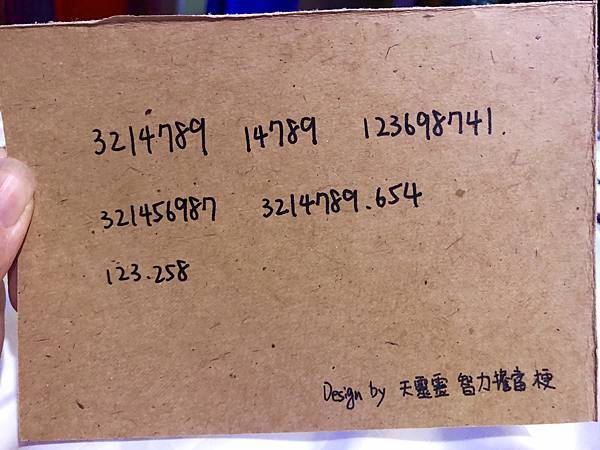 3214789 14789 123698741.
321456987 3214789.654
123.258
Design by 天靈靈 智力擔當 梗